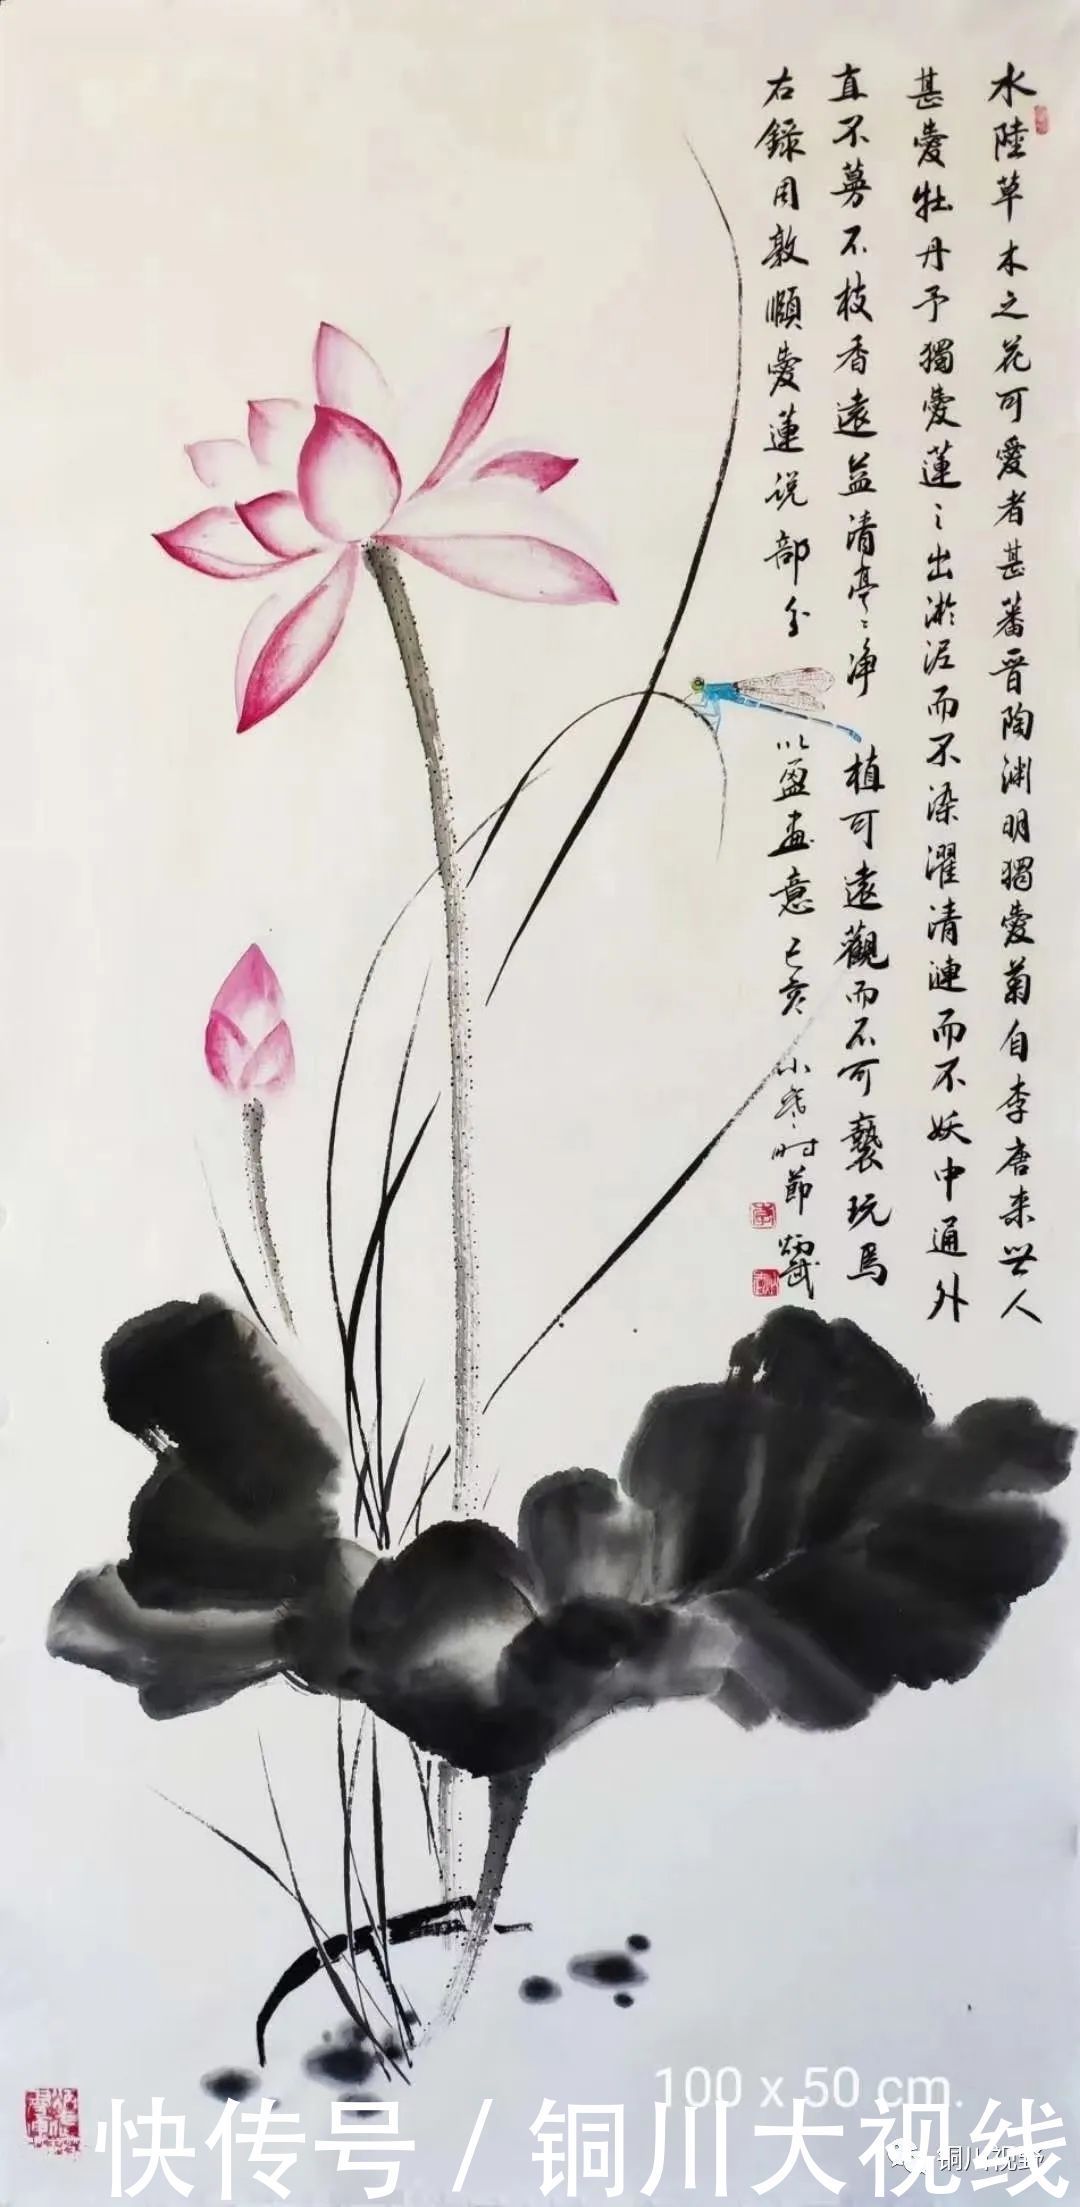 水陸草木之花可愛者甚蕃晋陶渊明獨愛菊自李唐来世人
甚愛牡丹予獨愛蓮之出淤泥而不染濯清漣而不妖中通外
直不蔓不枝香遠益清亭亭净植可遠觀而不可褻玩焉
右錄周敦頤愛蓮说部分以盈画意己亥小寒时節炳武
100 x 50 cm.
快传号 / 铜川大视线
铜川视野